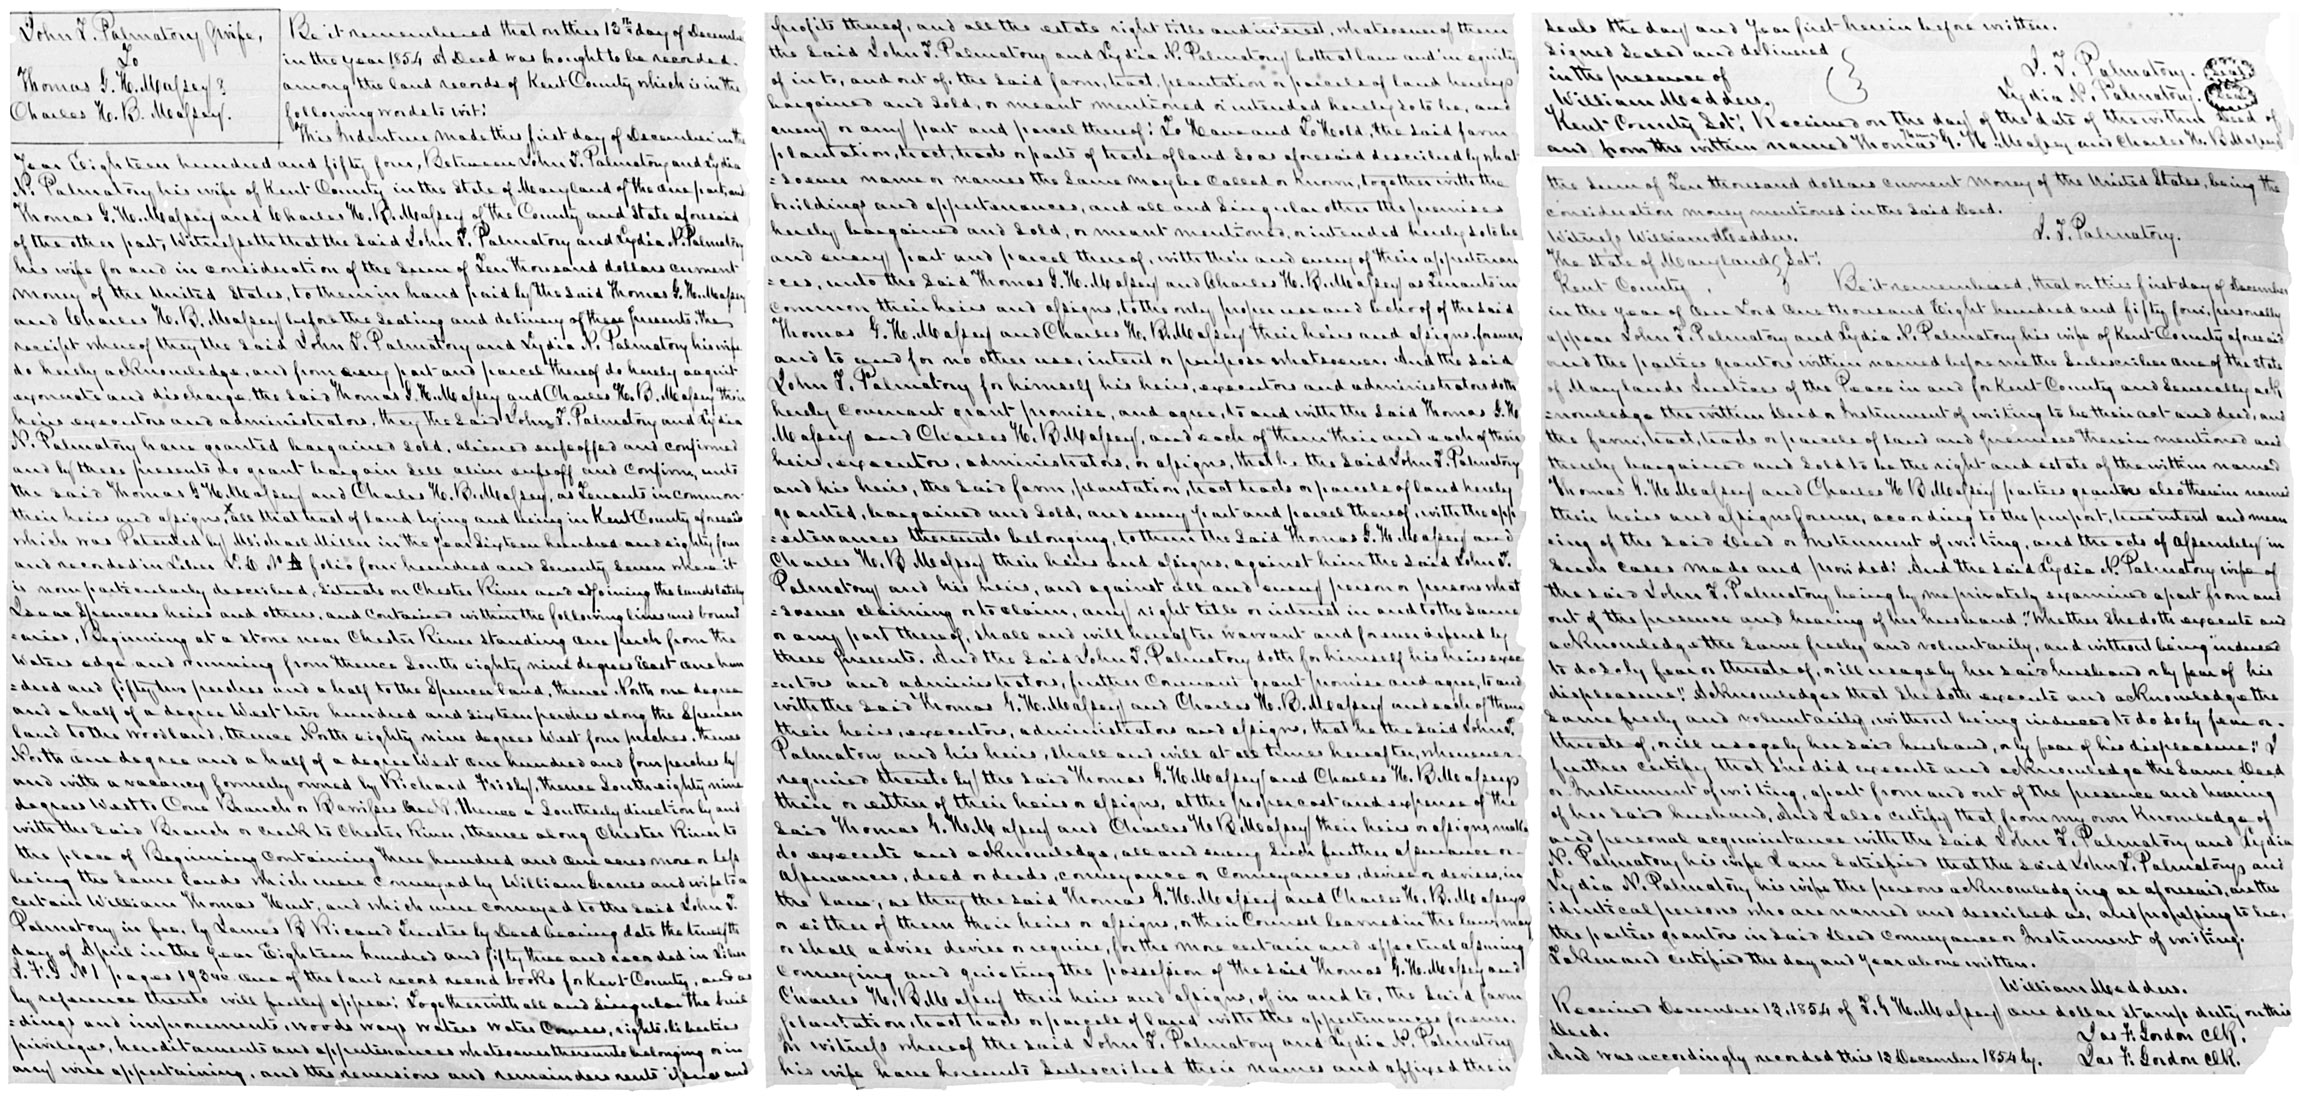 John T. Palmatory & wife,
To
Thomas G. H. Massey &
Charles H. B. Massey.
Be it remembered that on this 13th day of December
in the year 1854 A Deed was brought to be recorded.
among the land records of Kent County which is in the
following words to wit:
This Indenture made this first day of December in the
Year Eighteen hundred and fifty four, Between John T. Palmatory and Lydia
N. Palmatory his wife of Kent County in the State of Maryland of the one part, and
Thomas G. H. Massey and Charles H. B. Massey of the County and State aforesaid
of the other part, Witnesseth that the said John T. Palmatory and Lydia N. Palmatory
his wife for and in consideration of the Sum of Ten thousand dollars current
money of the United States, to them in hand paid by the said Thomas G. H. Massey
and Charles H. B. Massey before the Sealing and delivery of these presents, the
receipt whereof they the said John T. Palmatory and Lydia N. Palmatory his wife
do hereby acknowledge, and from every part and parcel thereof do hereby acquit
exonerate and discharge the said Thomas G. H. Massey and Charles H. B. Massey their
heirs executors and administrators, they the said John T. Palmatory and Lydia
N. Palmatory have granted bargained sold, aliened enfeoffed and confirmed
and by these presents do grant bargain Sell alien enfeoff and Confirm, unto
the said Thomas G H. Massey and Charles H. B. Massey, as Tenants in common
their heirs and assigns, x all that tract of land lying and being in Kent County aforesaid
which was Patented by Michael Miller in the year Sixteen hundred and eighty four
and recorded in Liber folio four hundred and Seventy Seven where it
is more particularly described, Situate on Chester River and adjoining the lands lately
Isaac Spencers heirs and others, and contained within the following lines and bound
=aries, Beginning at a stone near Chester River standing one perch from the
Waters edge and running from thence South eighty nine degrees East one hun
=dred and fifty two perches and a half to the Spencer land, thence North one degree
and a half of a degree West two hundred and sixteen perches along the Spencer
land to the woodland, thence North eighty nine degrees West four perches, thence
North one degree and a half of a degree West one hundred and four perches by
and with a vacancy formerly owned by Richard Frisby, thence South eighty nine
degrees West to Cove Branch or creek, thence a Southerly direction by and
with the said Branch or creek to Chester River, thence along Chester River to
the place of Beginning Containing three hundred and one acres more or less
being the same lands which were conveyed by William Graves and wife to a
certain William Thomas Hunt, and which were conveyed to the said John T.
Palmatory in fee, by James B Ricaud Trustee by Deed bearing date the twelfth
day of April in the year Eighteen hundred and fifty three and recorded in Liber
J. F. G. No 1 pages 193 &c. one of the land record record books for Kent County, and as
by reference thereto will fully appear: Together with all and singular the buil
=dings and improvements, woods ways waters water Courses, rights, liberties
privileges, hereditaments and appurtenances whatsoever thereunto belonging or in
any wise appertaining, and the reversions and remainders rents issues and
profits thereof, and all the estate right title and interest, whatsoever of them
the said John T. Palmatory and Lydia N. Palmatory both at law and in equity
of in to, and out of, the said farm, tract, plantation or parcels of land hereby
bargained and sold, or meant mentioned or intended hereby so to be, and
every or any part and parcel thereof: To Have and To Hold, the said farm
plantation, tract, tracts or parts of tracts of land so as aforesaid described by what
=soever name or names the same may be called or known, together with the
buildings and appurtenances, and all and Singular other the premises
hereby bargained and Sold, or meant mentioned, or intended hereby so to be
and every part and parcel thereof, with their and every of their appurtenan
=ces, unto the said Thomas G. H. Massey and Charles H. B. Massey as Tenants in
common their heirs and assigns, to the only proper use and behoof of the said
Thomas G. H. Massey and Charles H. B. Massey their heirs and assigns, forever,
and to and for no other use, intent or purpose whatsoever. And the said
John T. Palmatory for himself his heirs, executors and administrators doth
hereby covenant grant promise, and agree, to and with the said Thomas G. H.
Massey and Charles H. B. Massey, and each of them their and each of their
heirs, executors, administrators, or assigns, that he the said John T. Palmatory
and his heirs, the said farm, plantation, tract tracts or parcels of land hereby
granted, bargained and sold, and every part and parcel thereof, with the app
=urtenances thereunto belonging, to them the said Thomas G. H. Massey and
Charles H. B Massey their heirs and assigns, against him the said John T.
Palmatory and his heirs, and against all and every person or persons what
=soever claiming or to claim, any right title or interest in and to the same
or any part thereof, shall and will hereafter warrant and forever defend by
these presents. And the said John T. Palmatory doth for himself his heirs exec
=utors and administrators, further Covenant grant promise and agree, to and
with the said Thomas G. H. Massey and Charles H. B. Massey and each of them
their heirs, executors, administrators and assigns, that he the said John T.
Palmatory and his heirs, shall and will at all times hereafter, whenever
required thereto by the said Thomas G. H. Massey and Charles H. B. Massey
their or either of their heirs or assigns, at the proper cost and expense of the
said Thomas G. H. Massey and Charles H B. Massey their heirs or assigns make
do execute and acknowledge, all and every such further assurance or
assurances, deed or deeds, conveyance or conveyances, devise or devises, in
the law, as they the said Thomas G. H. Massey and Charles H. B. Massey
or either of them their heirs or assigns, or their Counsel learned in the law, may
or shall advise devise or require, for the more certain and effectual assuring
Conveying and quieting the possession of the said Thomas G. H. Massey and
Charles H. B. Massey their heirs and assigns, of in and to, the said farm
plantation, tract tracts or parcels of land with the appurtenances forever.
In witness whereof the said John T Palmatory and Lydia N. Palmatory
his wife have hereunto Subscribed their names and affixed their
seals the day and Year first herein before written.
Signed Sealed and delivered
in the presence of
William Medders.
J. T. Palmatory. Seal
Lydia N. Palmatory. Seal
Kent County Sct: Received on the day of the date of the within Deed of
and from the within named Thomas G. H. Massey and Charles H. B Massey
the Sum of Ten thousand dollars current money of the United States, being the
consideration money mentioned in the said Deed.
Witness William Medders. J. T. Palmatory.
The State of Maryland Sct:
Kent County, Be it remembered, that on this first day of December
in the year of our Lord one thousand Eight hundred and fifty four, personally
appear John T. Palmatory and Lydia N. Palmatory his wife of Kent County aforesaid
and the parties grantors within named before me the Subscriber one of the state
of Marylands Justices of the Peace in and for Kent County and Severally ack
=nowledge the within Deed or Instrument of writing to be their act and deed, and
the farm, tract, tracts or parcels of land and premises therein mentioned and
thereby bargained and Sold to be the right and estate of the within named
Thomas G. H. Massey and Charles H B. Massey parties grantees also therein named
their heirs and assigns forever, according to the purport, true intent and mean
=ing of the said Deed or Instrument of writing, and the acts of Assembly in
such cases made and provided: And the said Lydia N. Palmatory wife of
the said John T. Palmatory being by me privately examined apart from and
out of the presence and hearing of her husband "Whether She doth execute and
acknowledge the same freely and voluntarily, and without being induced
to do so by fear or threats of, or ill usage by her said husband or by fear of his
displeasure": Acknowledges that She doth execute and acknowledge the
same freely and voluntarily, without being induced to do so by fear or
threats of, or ill usage by her said husband, or by fear of his displeasure." I
further certify that She did execute and acknowledge the same Deed
or Instrument of writing, apart from and out of the presence and hearing
of her said husband, And I also certify that from my own Knowledge of
and personal acquaintance with the said John T. Palmatory and Lydia
N. Palmatory his wife I am Satisfied that the said John T. Palmatory and
Lydia N. Palmatory his wife the persons acknowledging as aforesaid, are the
identical persons who are named and described as, and professing to be,
the parties grantors in said Deed Conveyance or Instrument of writing.
Taken and certified the day and Year above written.
William Medders.
Received December 13, 1854 of T. G H. Massey one dollar stamp duty on this
Deed. Jas F. Gordon Clk.
And was accordingly recorded this 13 December 1854 by. Jas F. Gordon Clk.